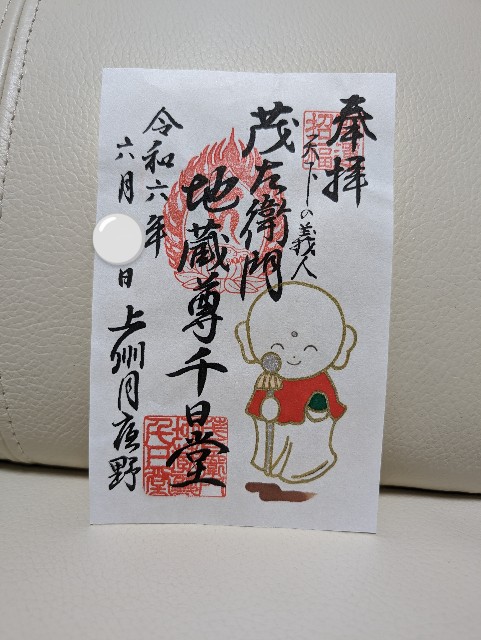 奉拝
天下の義人
茂左衛門
地蔵尊千日堂
令和六年
六月 日
上州月夜野